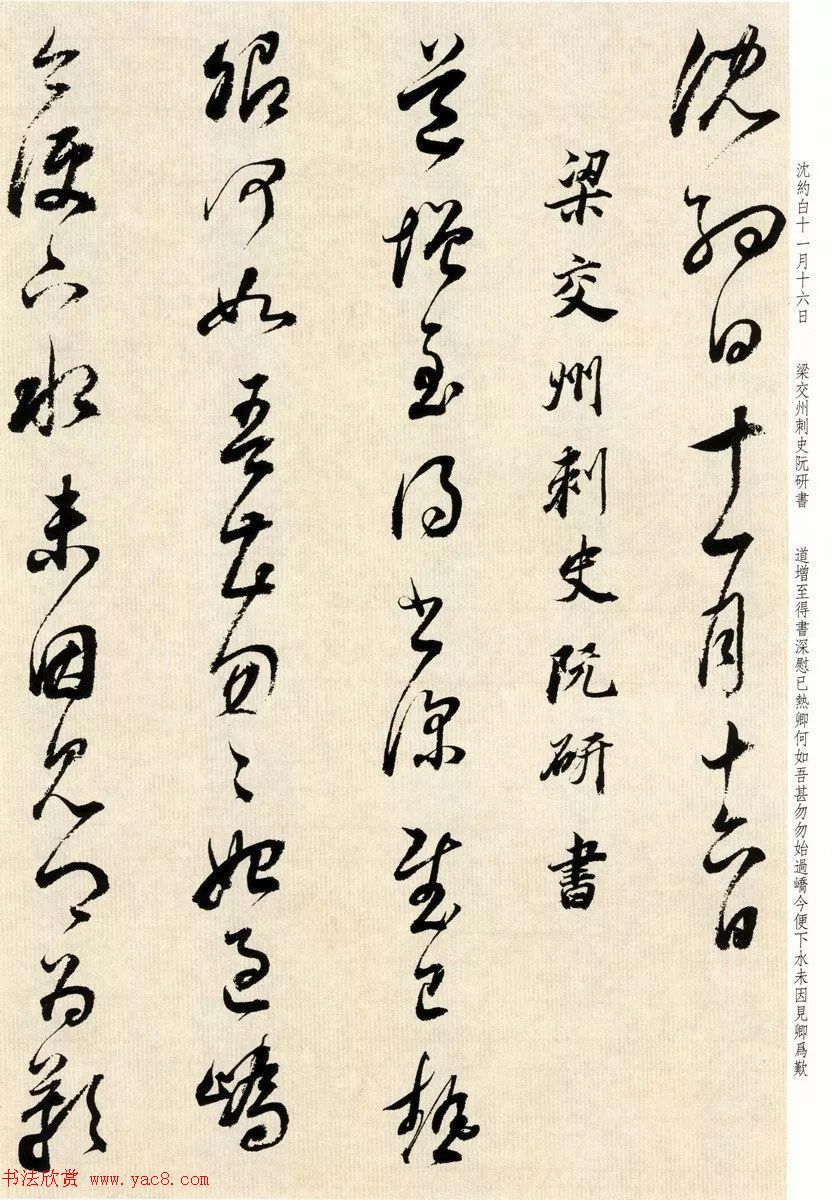 沈約白十一月十六日
梁交州刺史阮研書
道增至得書深慰已熱
卿何如吾甚勿〻始過嶠
今便下水未因見卿為歎
沈約白十一月十六日　梁交州刺史阮研書　道增至得書深慰已熱卿何如吾甚勿勿始過嶠今便下水未因見卿爲歎
书法欣赏 www.yac8.com